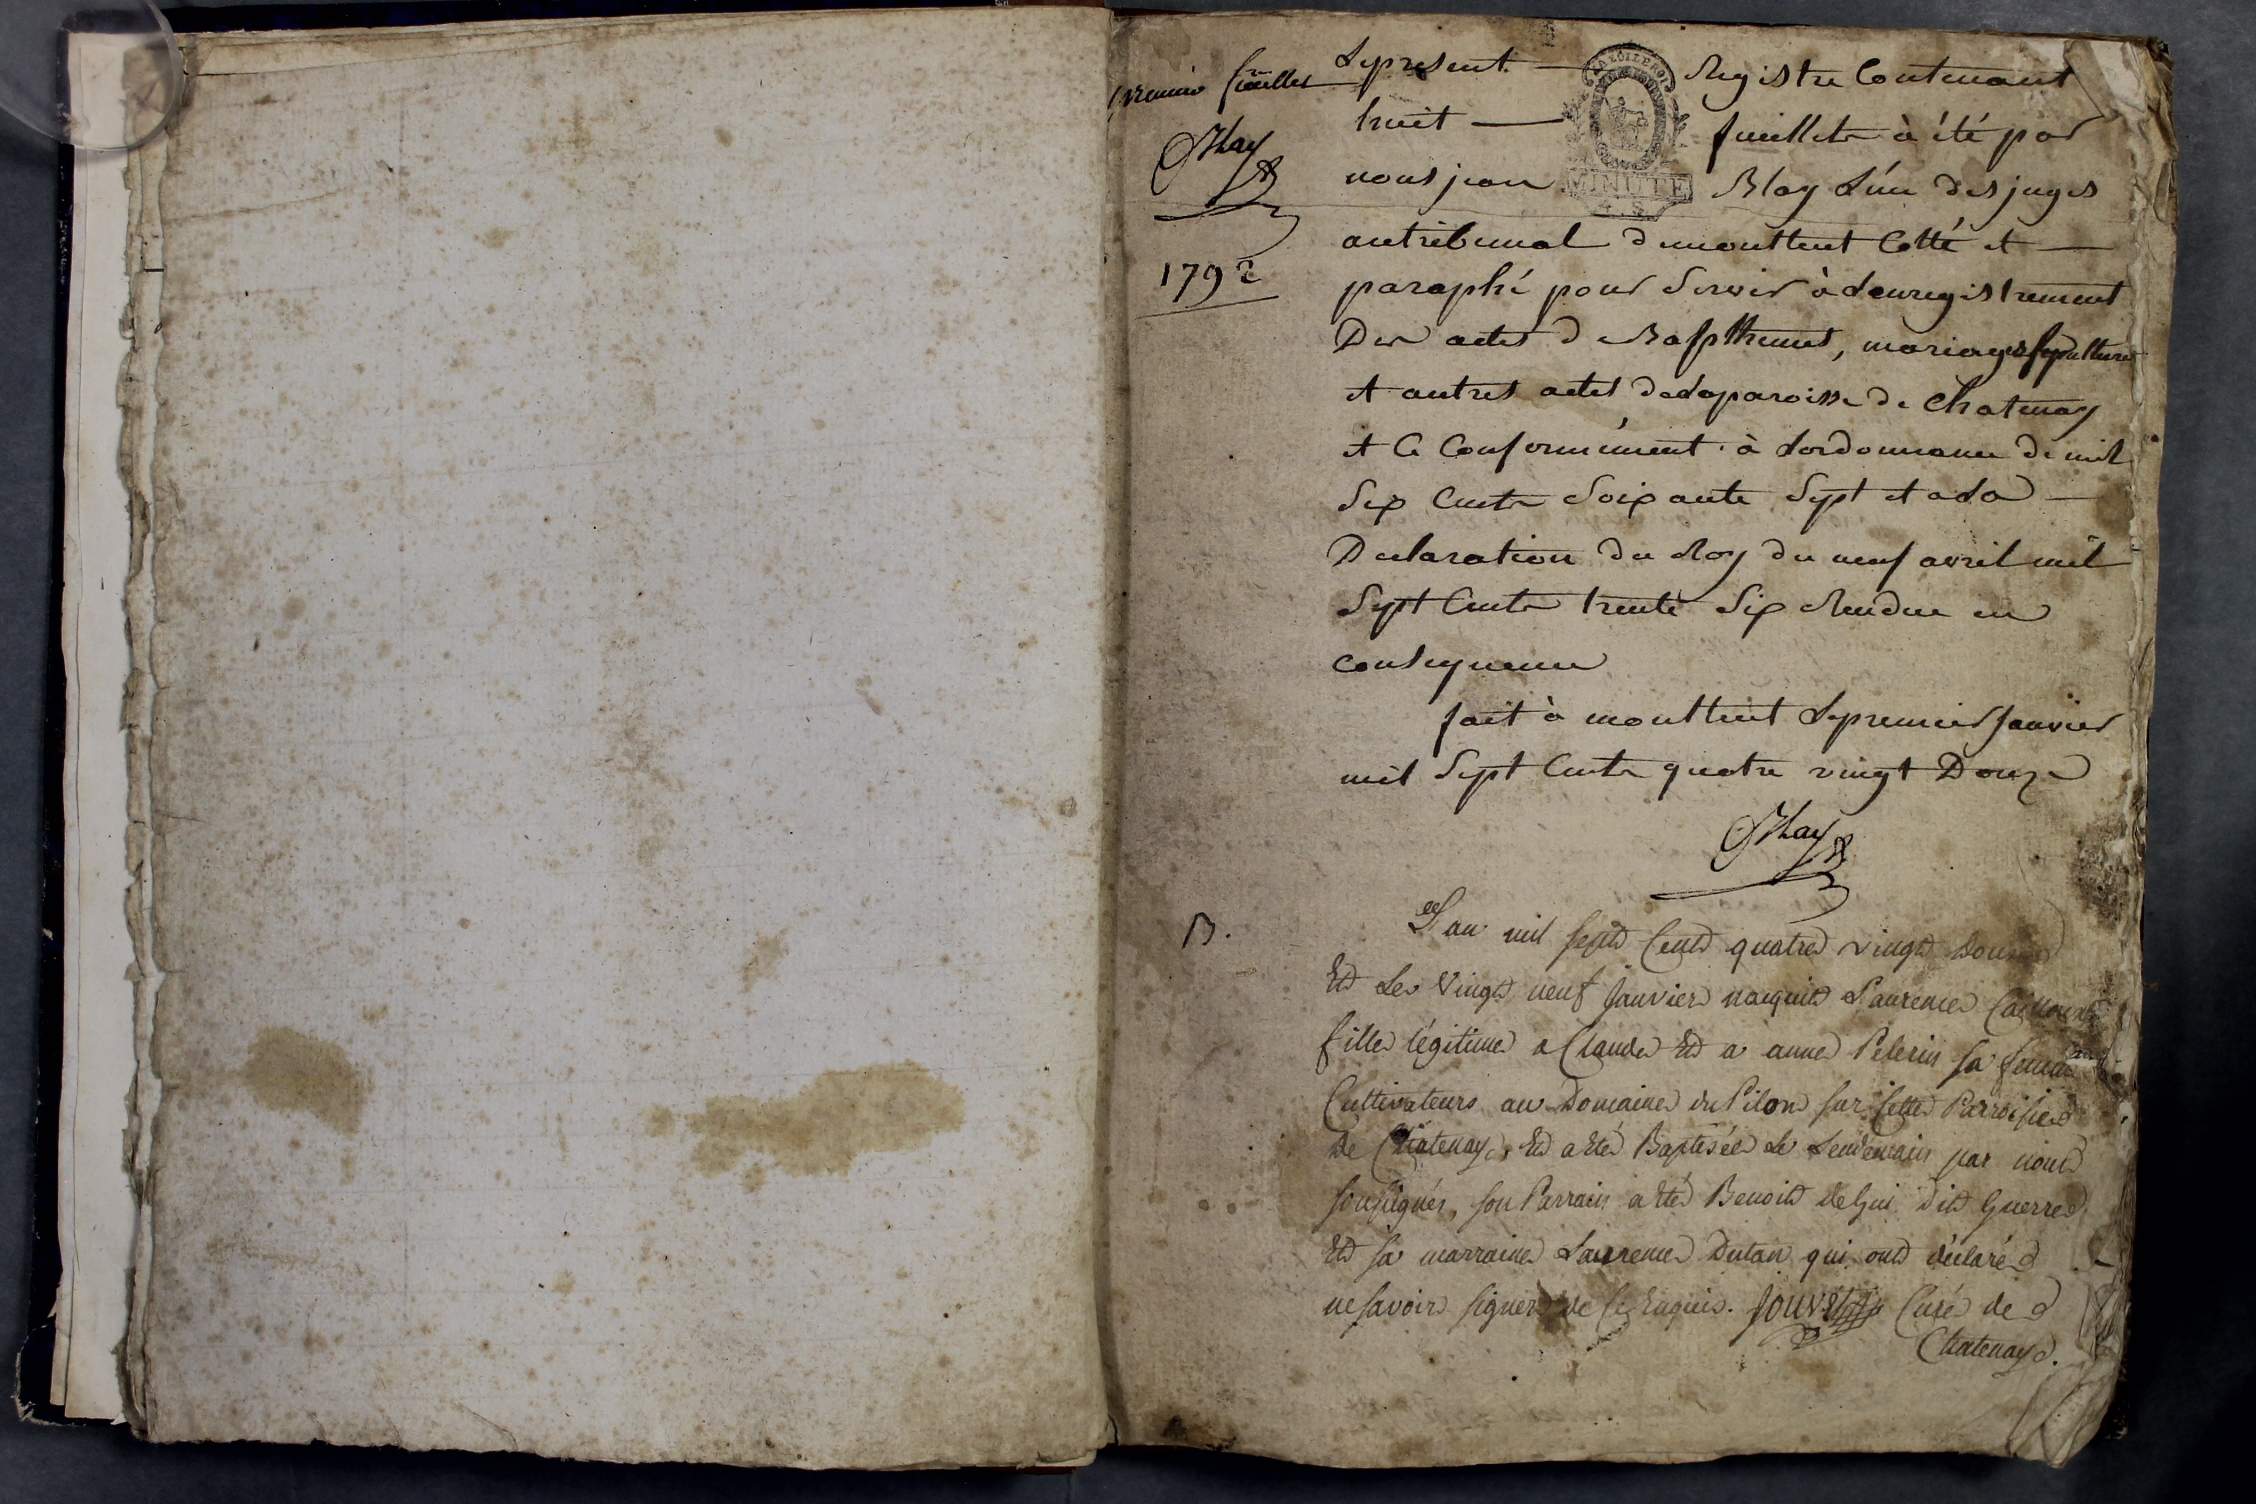 premier feuillet
Blay
1792
Le present Registre Contenant
huit feuillets à été par
nous jean Blay L'un des juges
au tribunal de montluel Cotté et
paraphé pour Servir à Lenregistrement
Des actes de Bapthemes, mariages sepultures
et autres actes de la paroisse de Chatenay
et Ce Conformément à Lordonnance de mil
Six Cents Soixante Sept et a La
Declaration du Roy du neuf avril mil
Sept Cents trente Six Rendue en
consequence
fait à montluel Le premier Janvier
mil Sept Cents quatre vingt Douze
Blay
LA LOI LE ROI
MINUTE
B.
L'an mil sept Cent quatre vingt Douze
Et Le Vingt neuf Janvier naquit Laurence
fille légitime a Claude Et a anne Pelerin sa femme
Cultivateurs au Domaine du Pilon sur Cette Parroisse
De Chatenay, Et a Eté Baptisée Le Lendemain par nous
soussignés, son Parrain a Eté Benoit deGui Dit Guerre
Et sa marraine Laurence Dutan qui ont déclaré
ne savoir signer de Ce Enquis. Jouvet Curé de
Chatenay.